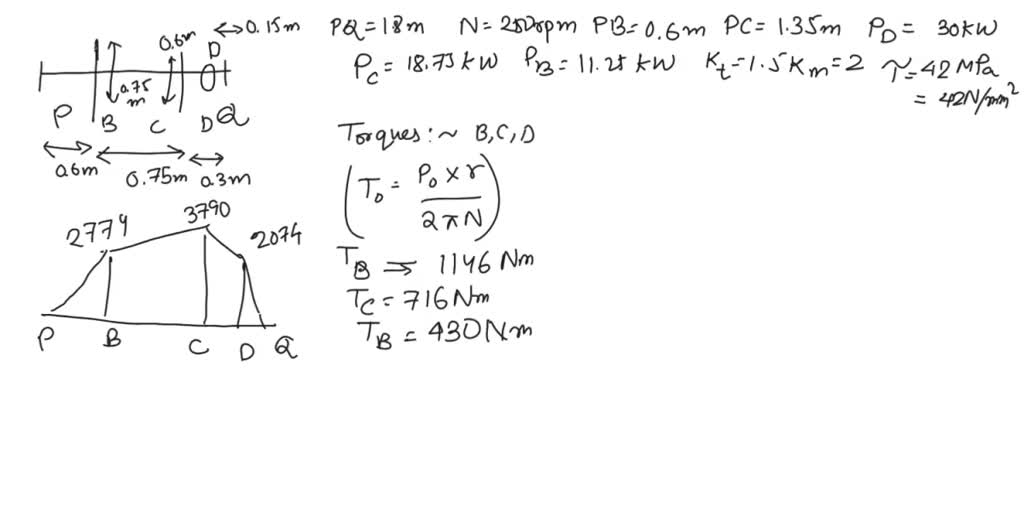 0.6m ↔ 0.15m
D
0.75
m
P B C D Q
0.6m 0.75m 0.3m
2779 3790 2074
P B C D Q
PQ = 18m N = 250rpm PB = 0.6m PC = 1.35m PD = 30kW
PC = 18.75kW PB = 11.25 kW Kt = 1.5 Km = 2 τ = 42 MPa
= 42N/mm²
Torques:~ B,C,D
(TD = PD × r / 2πN)
TB ⇒ 1146 Nm
TC = 716Nm
TB = 430Nm